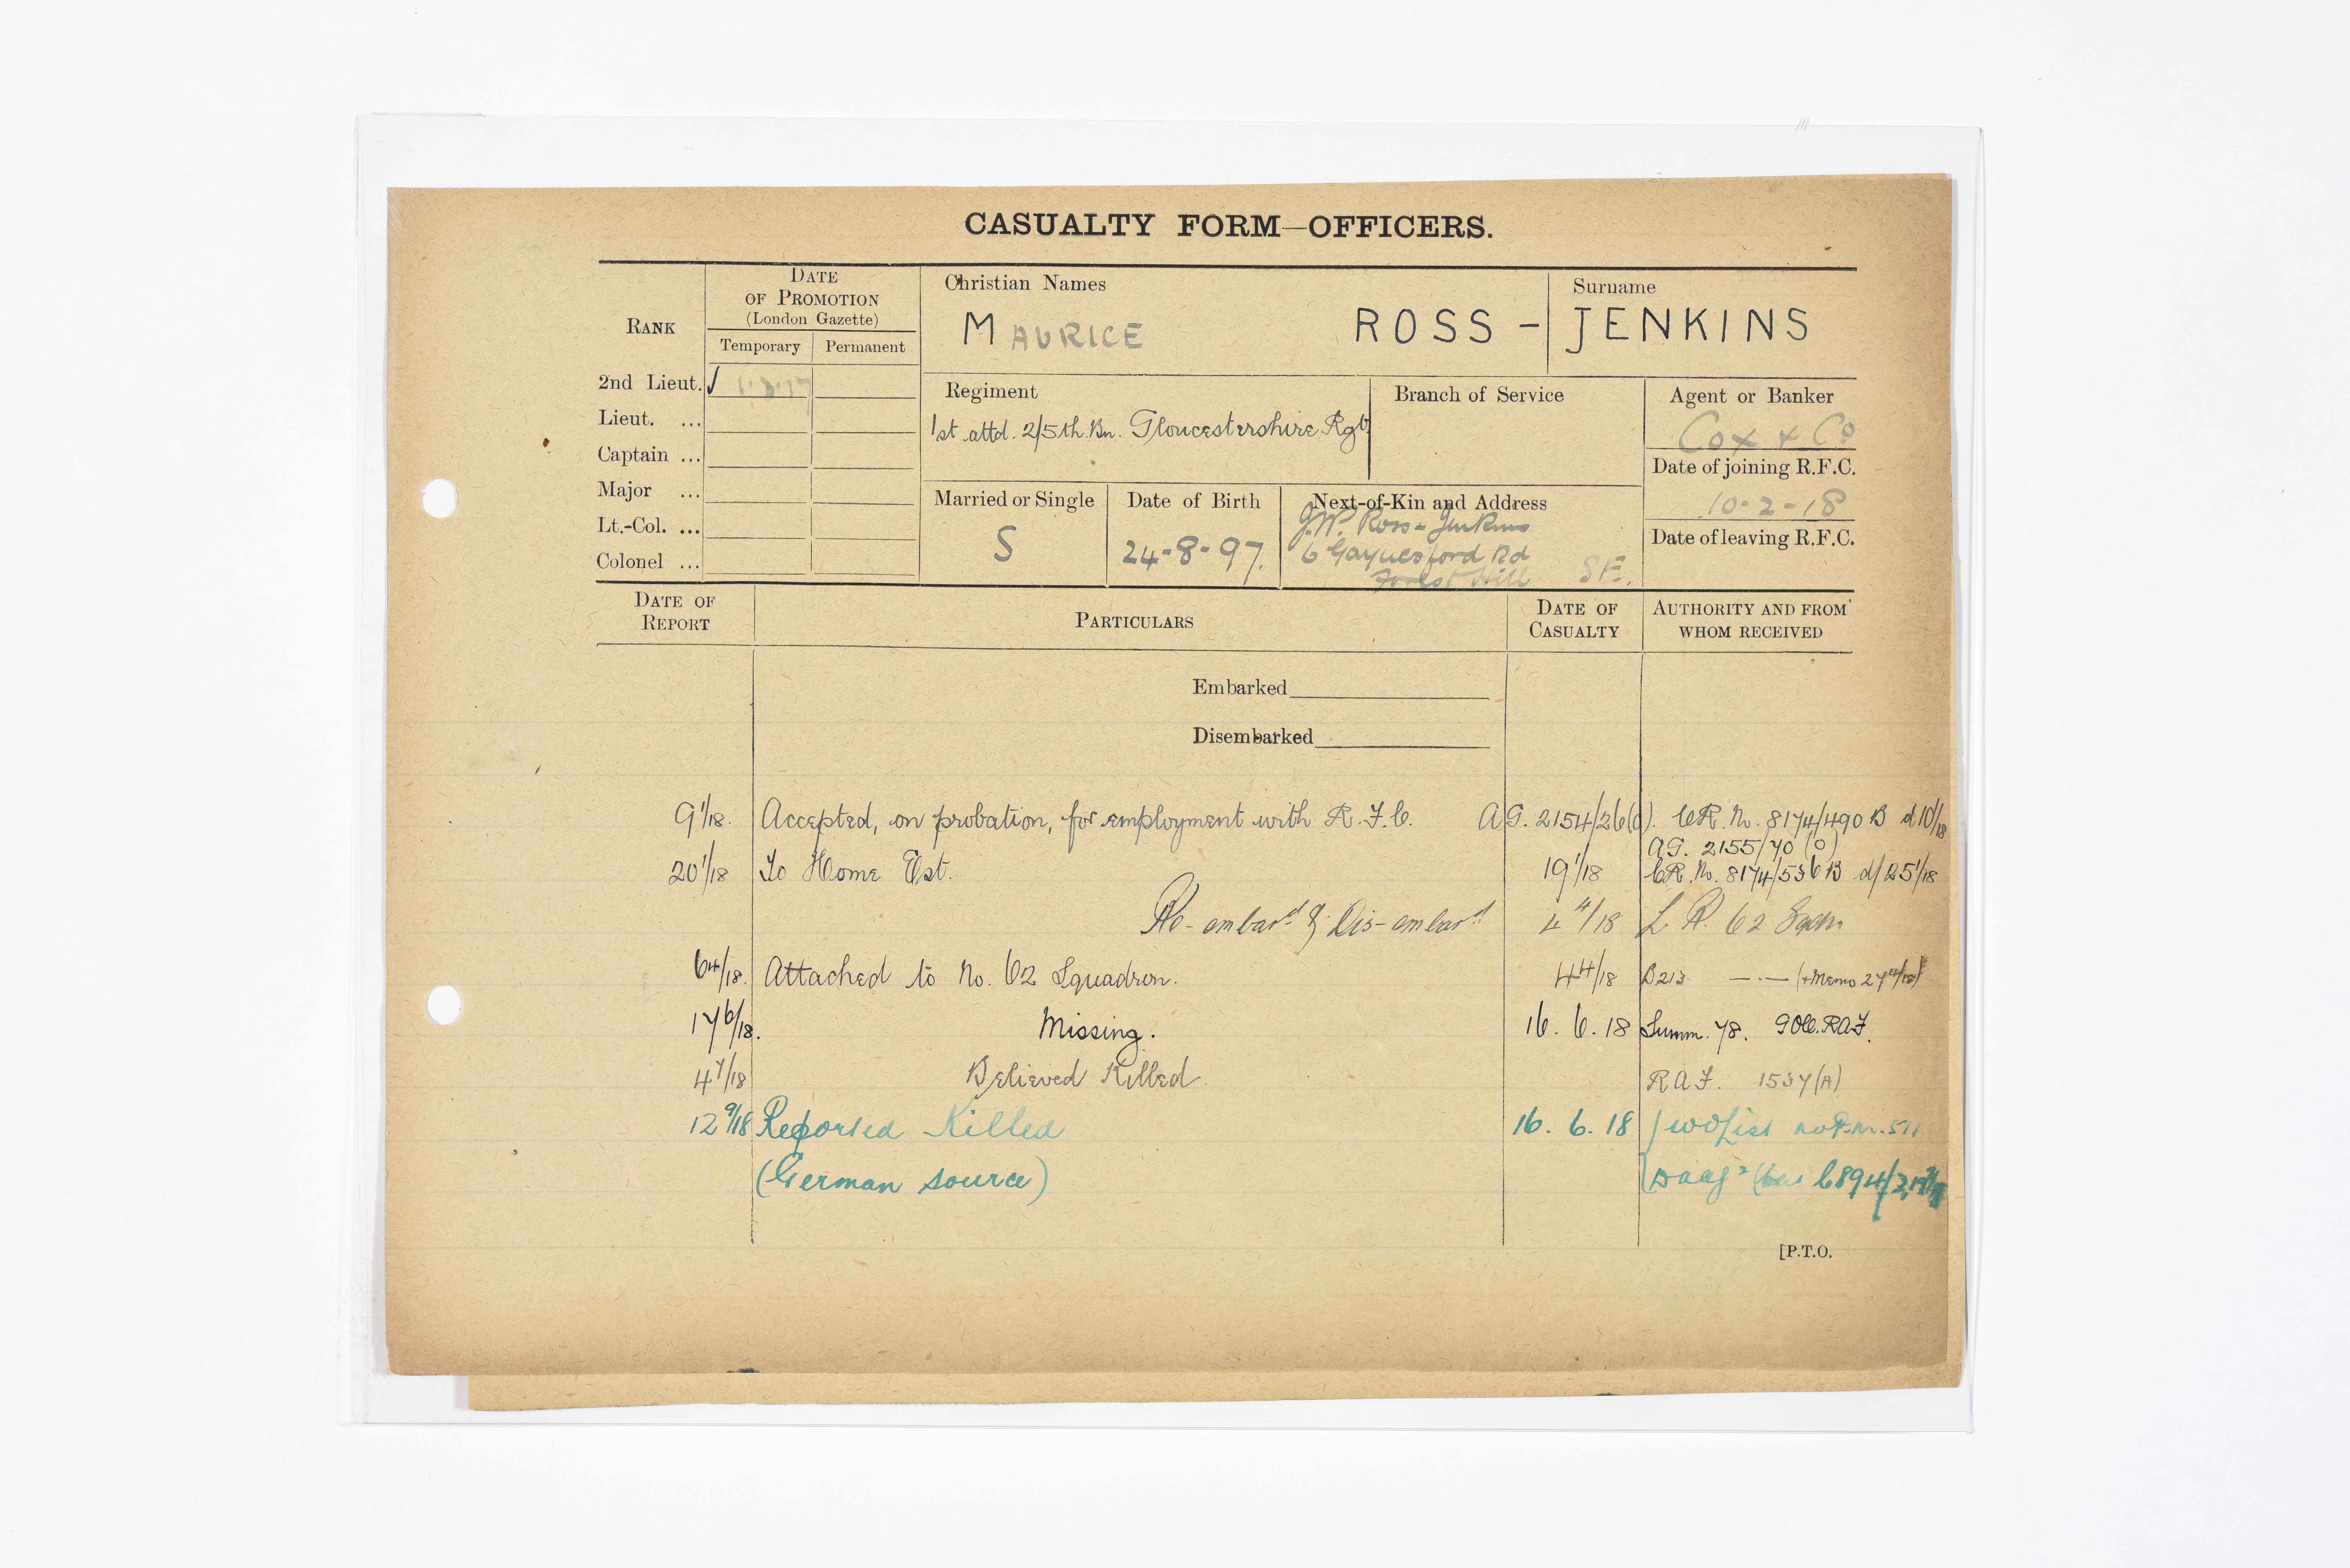 CASUALTY FORM—OFFICERS.
RANK
DATE OF PROMOTION (London Gazette)
Temporary
Permanent
Christian Names
MAURICE ROSS-
Surname
JENKINS
2nd Lieut. ✓ 1.3.17
Lieut. ...
Captain ...
Major ...
Lt.-Col. ...
Colonel ...
Regiment
1st attd. 2/5th. Bn. Gloucestershire Rgt.
Branch of Service
Agent or Banker
Cox & Co
Date of joining R.F.C.
10-2-18
Date of leaving R.F.C.
Married or Single
S
Date of Birth
24-8-97.
Next-of-Kin and Address
J.W. Ross-Jenkins
6 Gaynesford Rd
Forest Hill SE.
DATE OF REPORT
PARTICULARS
DATE OF CASUALTY
AUTHORITY AND FROM WHOM RECEIVED
Embarked
Disembarked
9 1/18. Accepted, on probation, for employment with R.F.C. AG. 2154/26(O). CR. No. 8174/490 B d 10/1/18
AG. 2155/70 (O)
20 1/18 To Home Est. 19 1/18 CR. No. 8174/536 B d/25 1/18
Re-embard & Dis-embard 4 4/18 L.R. 62 Sqdn
6 4/18. Attached to No. 62 Squadron. 4 4/18 B213 —·— (+Memo 27 4/18)
17 6/18. Missing. 16. 6. 18 Summ. 78. GOC. RAF.
4 7/18 Believed Killed. RAF. 1537(A)
12 9/18 Reported Killed 16. 6. 18 WO List
(German source) 6894/2
[P.T.O.